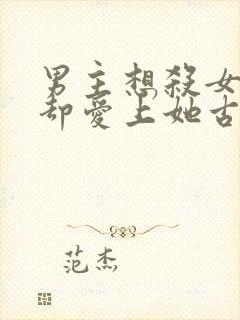 男主想殺女
却愛上她古
范杰